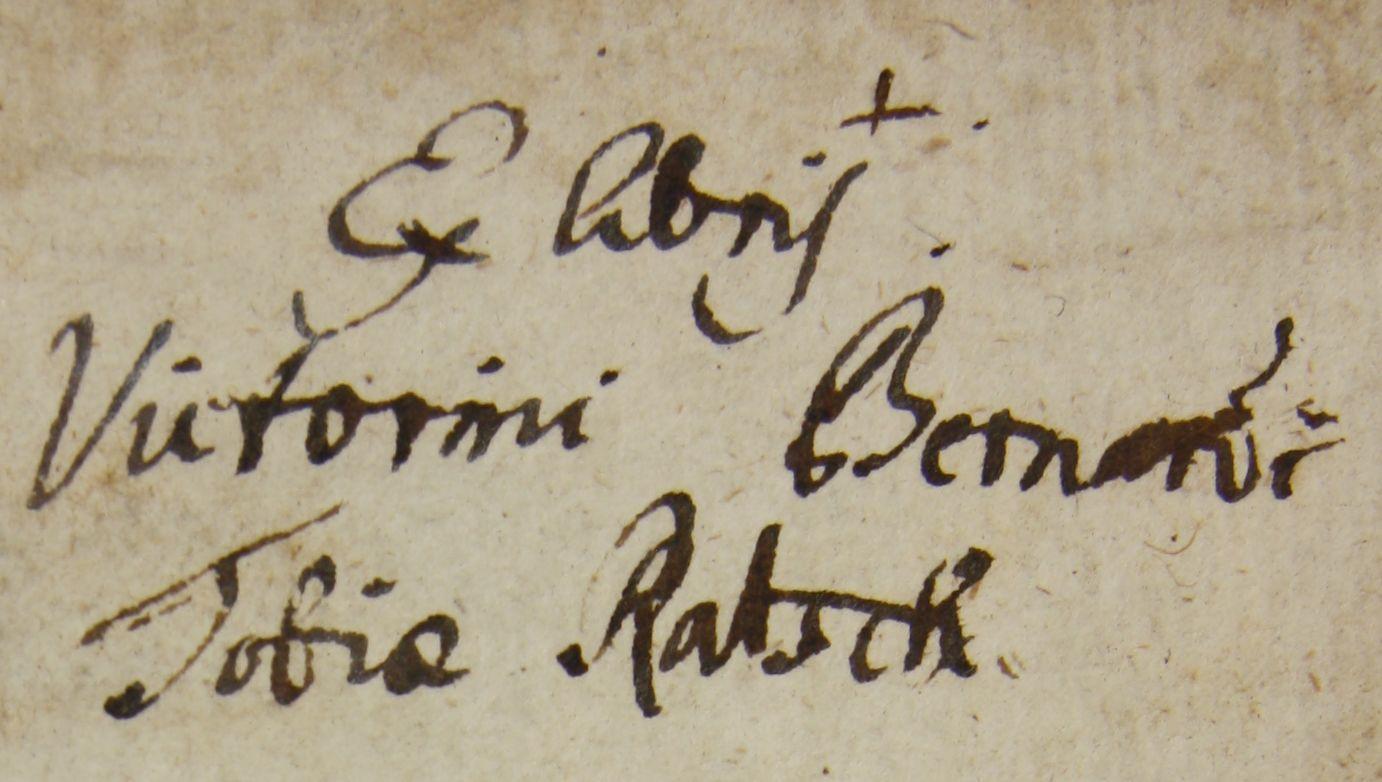 Ex libris
Victorini Bernardi
Tobiæ Ratsck